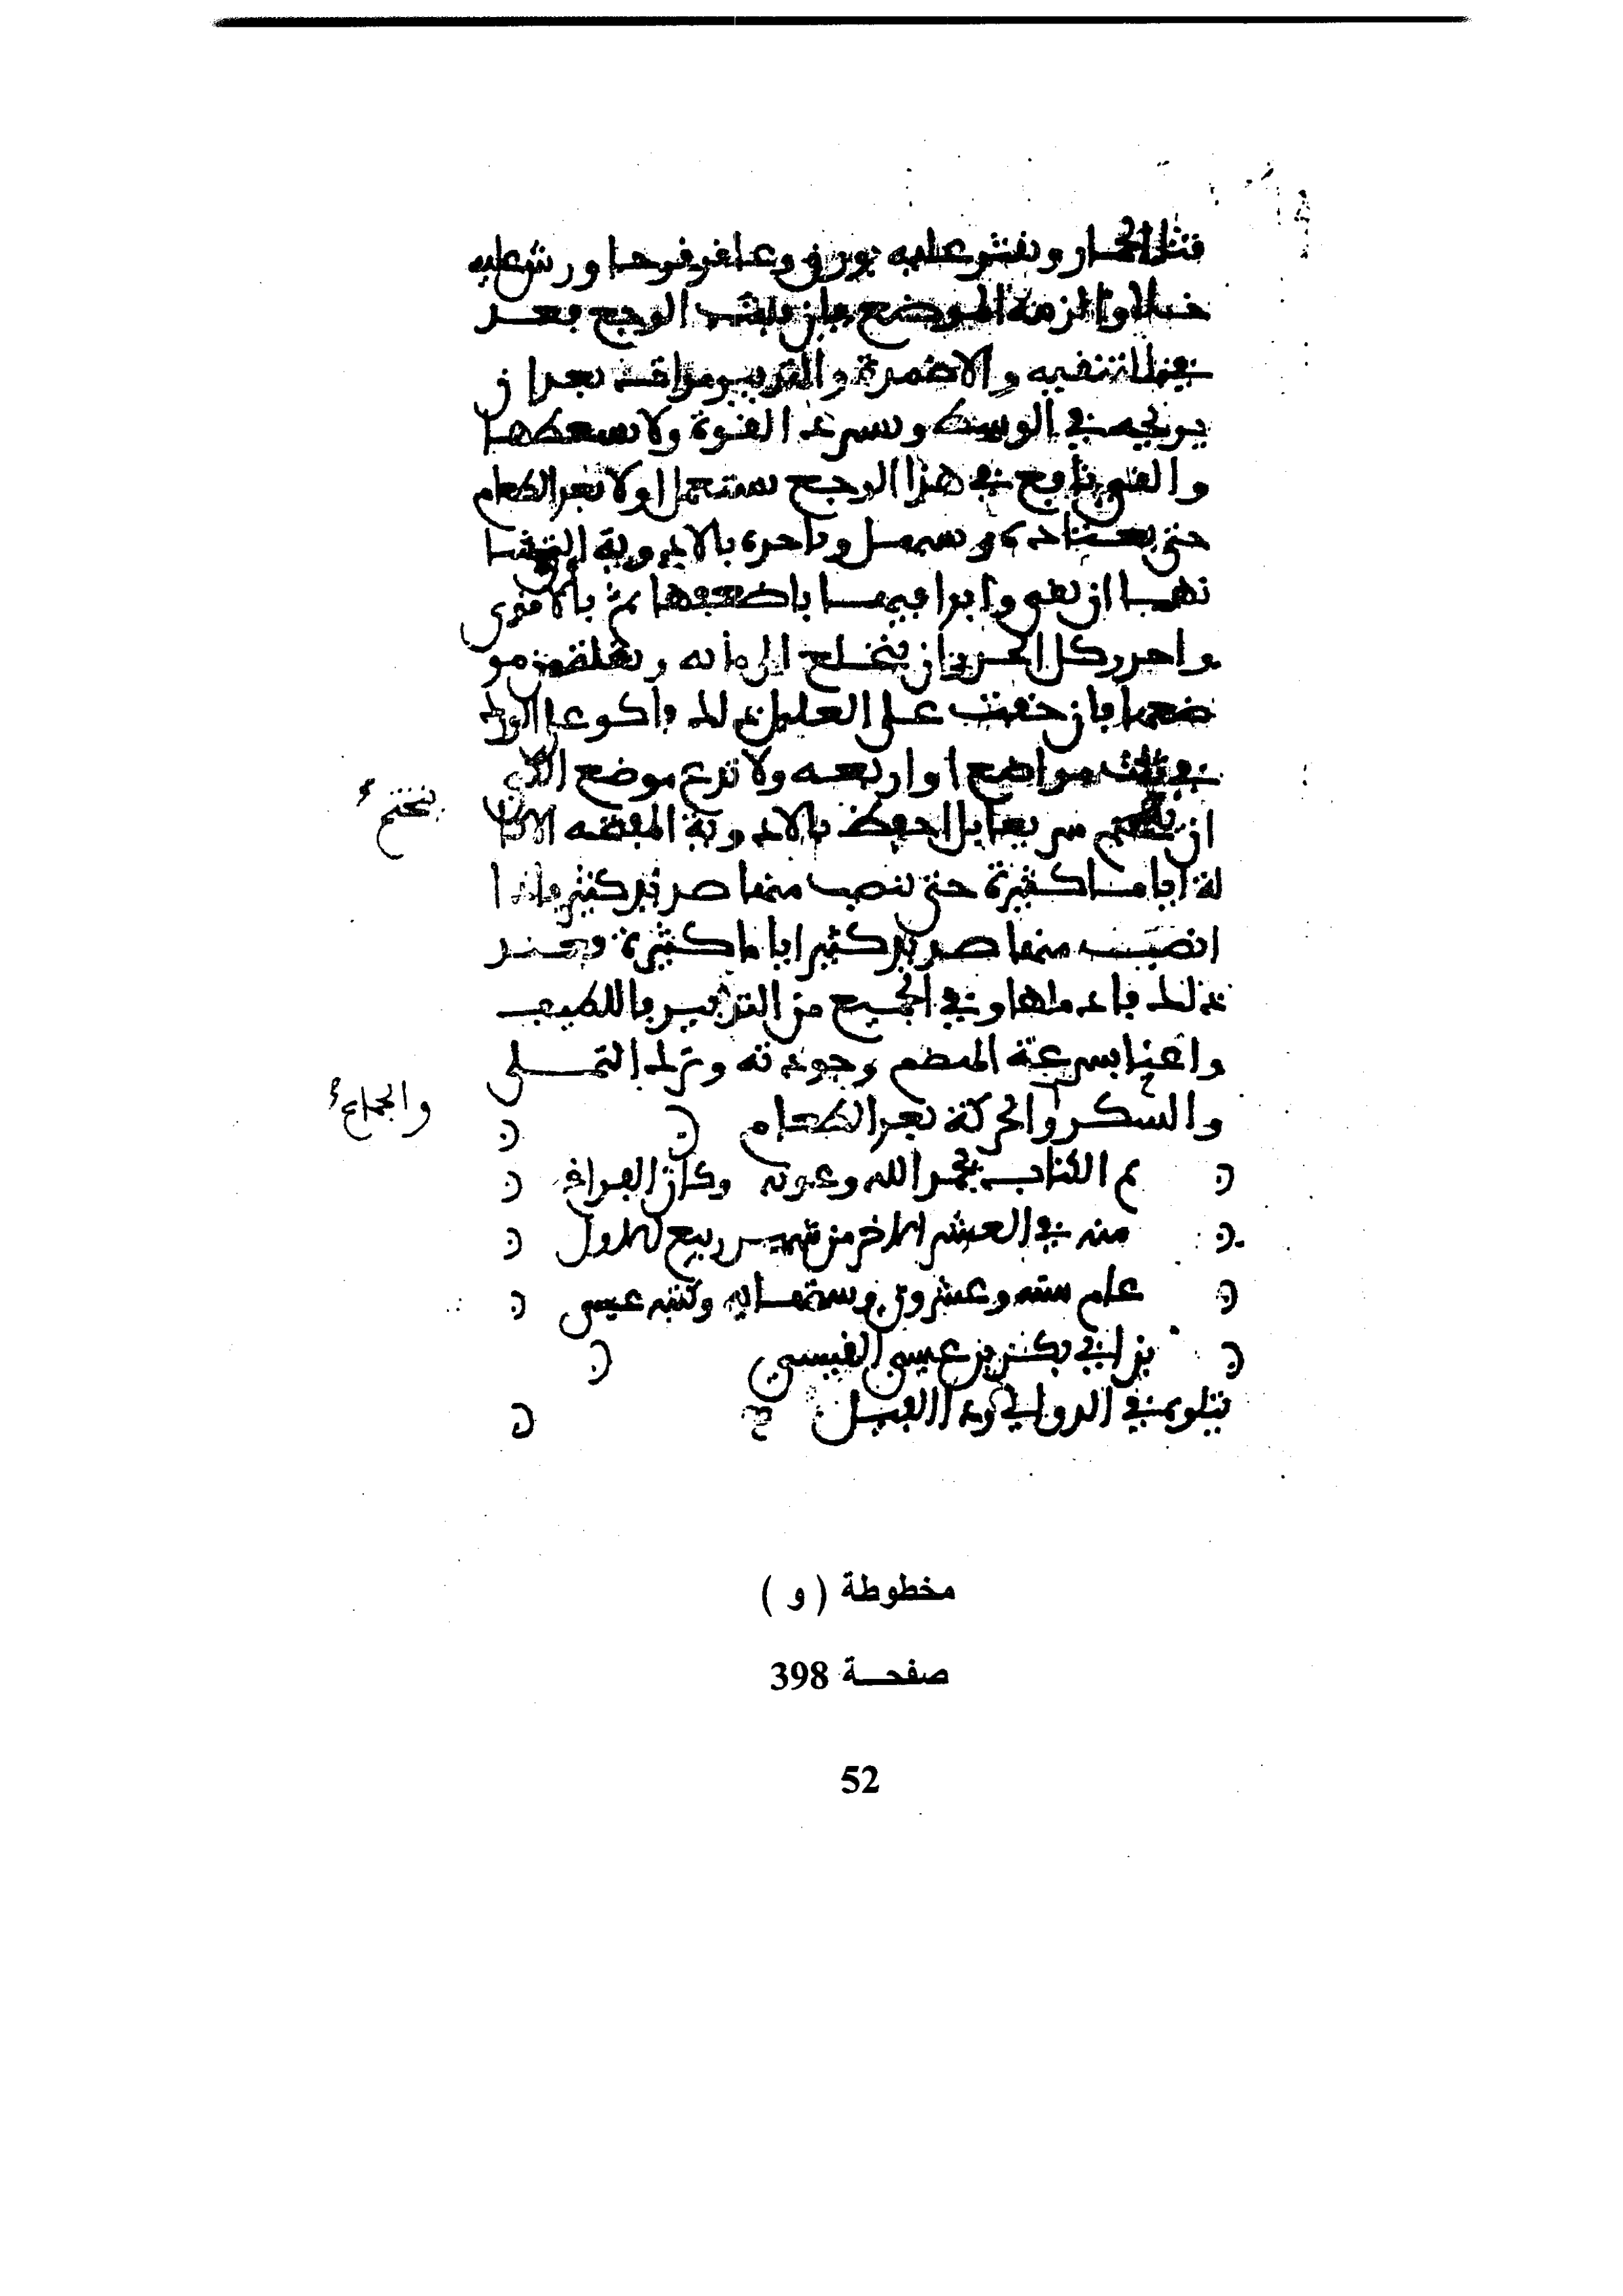 قثا الحمار ونثر عليه بورق وعاقر قرحا ورش عليه
خلا والزمه الموضع فان الوجع فعد
التنقيه والاضمدة والتدبير موافق بعد ان
يريحه في الوسط وتسترد القوة ولا تسقطها
والقي نافع في هذا الوجع يستعمل اولا بعد الطعام
حتى يعتاده ويسهل وباخره بالادوية التي شا
نها ان تقي وابدا فيها باضعفها ثم بالاقوى
واحذر كل الحذر ان ينخلع الورك ومن مو
ضعها فان خفت على العليل ذلك فاكو على الورك
في ثلث مواضع او اربعه ولا تدع موضع الكي
ان يلتحم سريعا بل احفظ بالادوية
يختم
له اياما كثيرة حتى ينصب منها صديد كثير فاذا
انصبت منها صديد كثير اياما كثيرة فعند
ذلك فادملها وفي الجميع من التدبير باللطيف
واعنا بسرعة الهضم وجودته وترك التملى
والسكر والحركة بعد الطعام
والجماع
تم الكتاب بحمد الله وعونه وكان الفراغ
منه في العشر الاخر من شهر ربيع الاول
عام ستة وعشرون وستماية وكتبه عيسى
بن ابي بكر بن عيسى القيسي
يتلوه في الدوالي وداء الفيل
مخطوطة ( و )
صفحـــة 398
52